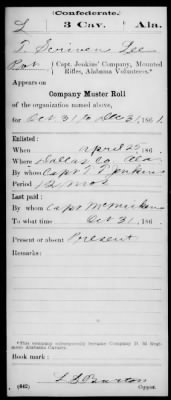 (Confederate.)
L 3 Cav. Ala.
T. Scriven Lee
Pvt { Capt. Jenkins' Company, Mounted Rifles, Alabama Volunteers.*
Appears on
Company Muster Roll
of the organization named above,
for Oct 31 to Dec 31, 1861.
Enlisted:
When April 25, 186 .
Where Dallas Co, Ala
By whom Capt T. F. Jenkins
Period 12 mos
Last paid:
By whom Capt
To what time Oct 31, 186 .
Present or absent Present
Remarks:
*This company subsequently became Company D, 3d Regiment Alabama Cavalry.
Book mark:
(642) Copyist.